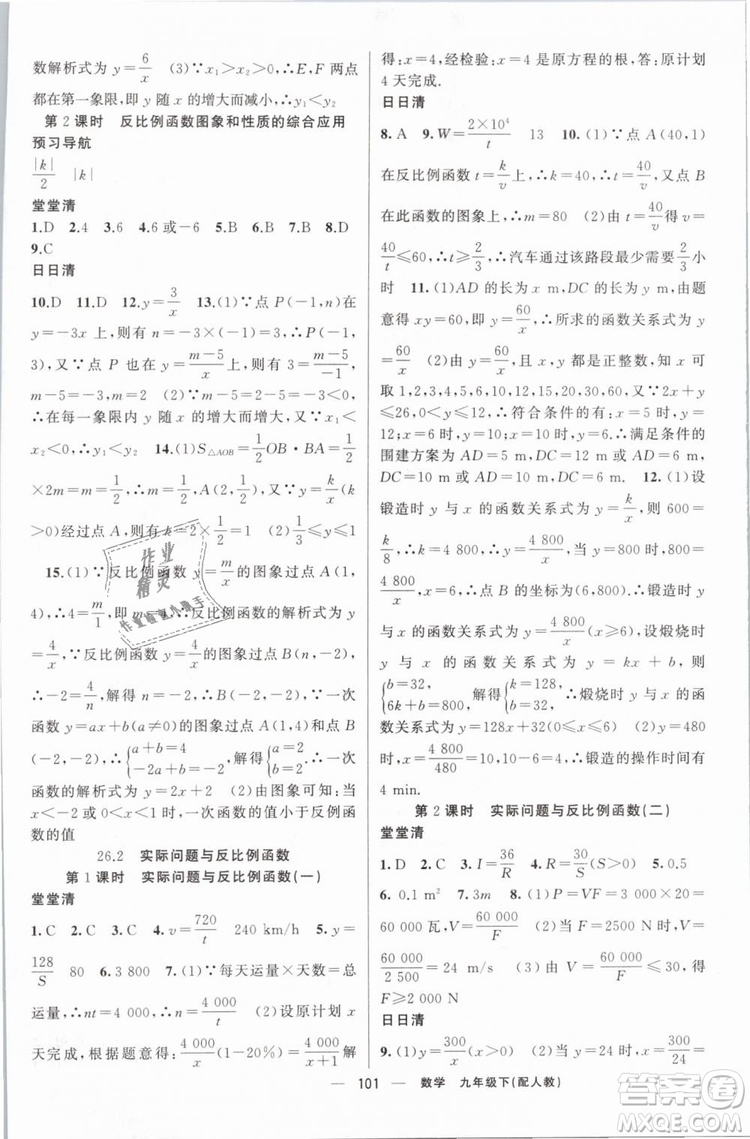 数解析式为 y=6/x　(3)∵x₁>x₂>0,∴E,F 两点
都在第一象限,即 y 随 x 的增大而减小,∴y₁<y₂
第 2 课时　反比例函数图象和性质的综合应用
预习导航
|k|/2　|k|
堂堂清
1.D　2.4　3.4　4.6 或-6　5.B　6.B　7.B　8.D
9.C
日日清
10.D　11.A　12.y=3/x　13.(1)∵点 P(-1,n)在
y=x-2 上,∴n=-3=(-1)-2=-3,∴P(-1,
-3),∴点 P 也在 y=(m-5)/x 上,则-3=(m-5)/(-1),
m-5=3,∴m=8　(2)由题意可知 m-5<0,∴
m<5,∴在每一象限内 y 随 x 的增大而增大,∵
x₁<x₂<0,∴y₁<y₂　14.(1)S△AOB=1/2OB·BA=1/2
×2m=1/2,∴m=1/2,∴A(2,1/2),又∵y=k/x(k
>0)经过点 A,则有 k=2×1/2=1　(2)1/3≤y≤1
15.(1)∵反比例函数 y=m/x 的图象过点 A(1,
4),∴4=m/1,即 m=4,∴反比例函数的解析式为 y=
4/x,∵反比例函数 y=4/x 的图象过点 B(n,-2),
∴-2=4/n,解得 n=-2,∴B(-2,-2),∵一次
函数 y=ax+b(a≠0)的图象过点 A(1,4)和点 B
(-2,-2),∴{a+b=4, -2a+b=-2, 解得{a=2, b=2, ∴一次
函数的解析式为 y=2x+2　(2)由图象可知:当 x
<-2 或 0<x<1 时,一次函数的值小于反比例函
数的值
26.2　实际问题与反比例函数
第 1 课时　实际问题与反比例函数(一)
堂堂清
1.C　2.C　3.C　4.v=720/t　240 km/h　5.y=
128/S　80　6.3 800　7.(1)∵每天运量×天数=总
运量,∴nt=4 000,∴n=4 000/t　(2)设原计划 x
天完成,根据题意得:4 000/x(1-20%)=4 000/(x+1) 解
得:x=4,经检验:x=4 是原方程的根,答:原计划
4 天完成.
日日清
8.A　9.W=2×10⁴/t　13　10.(1)∵点 A(40,1)
在反比例函数 t=k/v 上,∴k=40,∴t=40/v,又点 B
在此函数的图象上,∴m=80　(2)由 v≤60,得
40/t≤60,∴t≥2/3,∴汽车通过该路段最少需要2/3小
时　11.(1)AD 的长为 x m,DC 的长为 y m,由题
意得 xy=60,即 y=60/x,∴所求的函数关系式为 y=
60/x　(2)由 y=60/x,且 x,y 都是正整数,知 x 可
取 1,2,3,4,5,6,10,12,15,20,30,60,又∵2x+y
≤26,0<y≤12,∴符合条件的有:x=5 时,y=
12;x=6 时,y=10;x=10 时,y=6,∴满足条件的
围建方案为 AD=5 m,DC=12 m 或 AD=6 m,
DC=10 m 或 AD=10 m,DC=6 m　12.(1)设
锻造时 y 与 x 的函数关系式为 y=k/x,则 600=
k/8,∴k=4 800,∴锻造时 y 与 x 的函数关系式为 y=
4 800/x,∴点 B 的坐标为(6,800);∴锻造时 y
与 x 的函数关系式为 y=4 800/x(x≥6);设煅烧时
y 与 x 的函数关系式为 y=kx+b,则
{b=32, 6k+b=800, 解得{k=128, b=32, ∴煅烧时 y 与 x 的函
数关系式为 y=128x+32(0≤x≤6)　(2)y=480
时,x=4 800/480=10,10-6=4,∴锻造的操作时间有
4 min.
第 2 课时　实际问题与反比例函数(二)
堂堂清
1.D　2.C　3.I=36/R　4.R=30/S(S>0)　5.0.5
6.0.1 m²　7.3m　8.(1)P=VF=3 000×20=
60 000 瓦,V=60 000/F　(2)当 F=2500 N 时,V=
60 000/2 500=24 m/s　(3)由 V=60 000/F≤30,得
F≥2 000 N
日日清
9.(1)y=300/x(x>0)　(2)当 y=24 时,x=300/24
101　数学　九年级下(配人教)
作业
精灵
作业检查小帮手
MXQE.COM